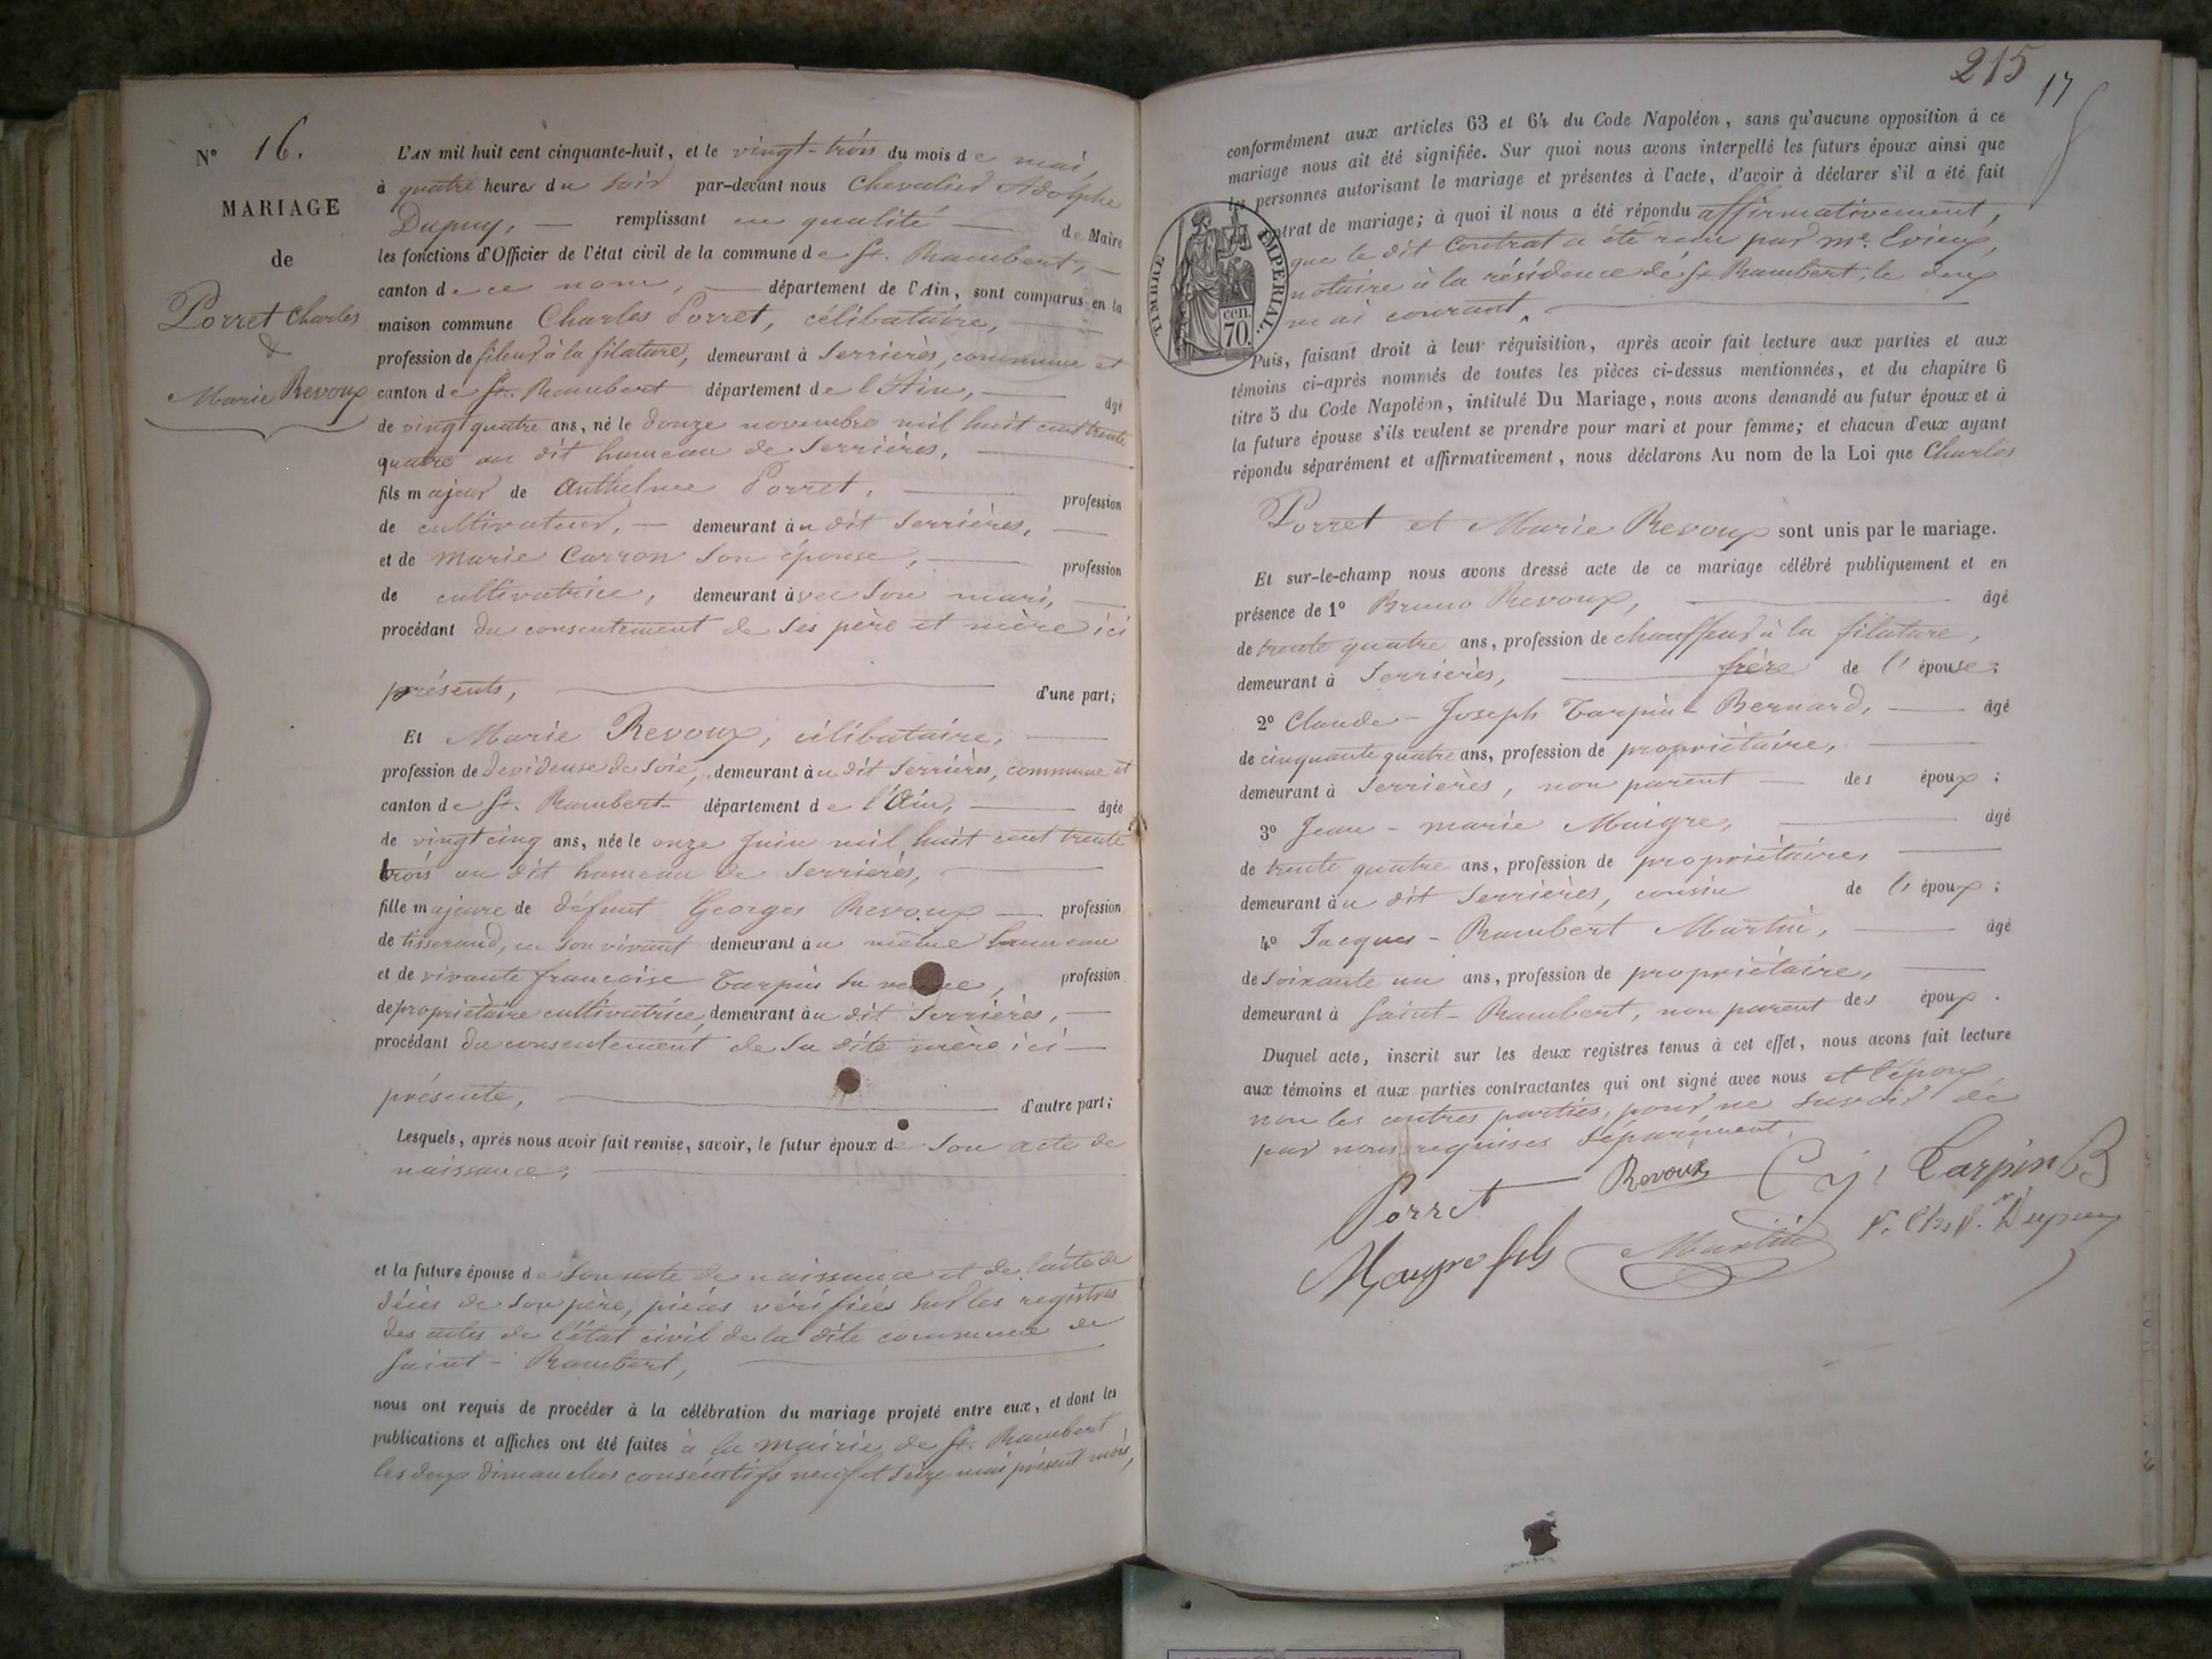 N° 16.
MARIAGE
de
Porret Charles
&
Marie Revoux
L'AN mil huit cent cinquante-huit, et le vingt-trois du mois de mai,
à quatre heures du soir par-devant nous Chevalier Adolphe
Dupuy, — remplissant en qualité — de Maire
les fonctions d'Officier de l'état civil de la commune de St. Rambert, —
canton de ce nom, — département de l'Ain, sont comparus en la
maison commune Charles Porret, célibataire, —
profession de fileur à la filature, demeurant à Serrières, commune et
canton de St. Rambert département de l'Ain, — âgé
de vingt quatre ans, né le douze novembre mil huit cent trente
quatre au dit hameau de Serrières, —
fils majeur de Anthelme Porret, — profession
de cultivateur, — demeurant au dit Serrières, —
et de Marie Carron son épouse, — profession
de cultivatrice, demeurant avec son mari, —
procédant du consentement de ses père et mère ici
présents, — d'une part;
Et Marie Revoux, célibataire, —
profession de devideuse de soie, demeurant au dit Serrières, commune et
canton de St. Rambert département de l'Ain, — âgée
de vingt cinq ans, née le onze Juin mil huit cent trente
trois au dit hameau de Serrières, —
fille majeure de défunt Georges Revoux — profession
de tisserand, en son vivant demeurant au même hameau
et de vivante françoise Tarpin sa veuve, profession
de propriètaire cultivatrice, demeurant au dit Serrières, —
procédant du consentement de sa dite mère ici —
présente, — d'autre part;
Lesquels, après nous avoir fait remise, savoir, le futur époux de son acte de
naissance, —
et la future épouse de son acte de naissance et de l'acte de
décès de son père, pièces vérifiées sur les registres
des actes de l'état civil de la dite commune de
Saint-Rambert, —
nous ont requis de procéder à la célébration du mariage projeté entre eux, et dont les
publications et affiches ont été faites à la mairie de St. Rambert
les deux dimanches consécutifs neuf et seize mai présent mois,
215
17
conformément aux articles 63 et 64 du Code Napoléon, sans qu'aucune opposition à ce
mariage nous ait été signifiée. Sur quoi nous avons interpellé les futurs époux ainsi que
les personnes autorisant le mariage et présentes à l'acte, d'avoir à déclarer s'il a été fait
contrat de mariage; à quoi il nous a été répondu affirmativement,
que le dit Contrat a été reçu par Me. Evieux,
notaire à la résidence de St Rambert, le deux
mai courant, —
TIMBRE IMPERIAL.
cen.
70.
Puis, faisant droit à leur réquisition, après avoir fait lecture aux parties et aux
témoins ci-après nommés de toutes les pièces ci-dessus mentionnées, et du chapitre 6
titre 5 du Code Napoléon, intitulé Du Mariage, nous avons demandé au futur époux et à
la future épouse s'ils veulent se prendre pour mari et pour femme; et chacun d'eux ayant
répondu séparément et affirmativement, nous déclarons Au nom de la Loi que Charles
Porret et Marie Revoux sont unis par le mariage.
Et sur-le-champ nous avons dressé acte de ce mariage célébré publiquement et en
présence de 1° Bruno Revoux, — âgé
de trente quatre ans, profession de chauffeur à la filature,
demeurant à Serrières, — frère de l'épouse;
2° Claude-Joseph Tarpin-Bernard, — âgé
de cinquante quatre ans, profession de propriètaire, —
demeurant à Serrières, non parent — des époux;
3° Jean-marie Maigre, — âgé
de trente quatre ans, profession de propriètaire, —
demeurant au dit Serrières, cousin de l'époux;
4° Jacques-Rambert Martin, — âgé
de soixante un ans, profession de propriètaire, —
demeurant à Saint-Rambert, non parent des époux.
Duquel acte, inscrit sur les deux registres tenus à cet effet, nous avons fait lecture
aux témoins et aux parties contractantes qui ont signé avec nous et l'époux,
non les autres parties, pour ne savoir de
par nous requises séparément.
Porret Revoux Tarpin B
Martin Dupuy